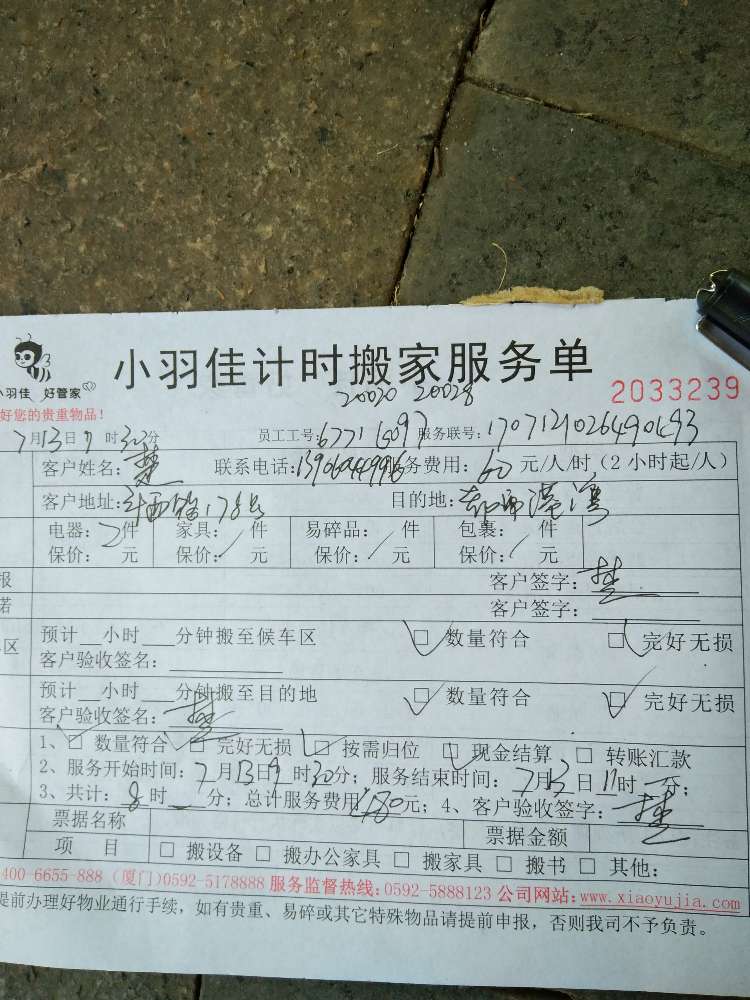 小羽佳 好管家
小羽佳计时搬家服务单
20020 20028
2033239
好您的贵重物品！
7月13日9时30分 员工工号: 服务联号:
客户姓名:楚 联系电话: 服务费用:60元/人/时(2小时起/人)
客户地址: 目的地:
电器:2件 家具:/件 易碎品: 件 包裹: 件
保价: 元 保价:/元 保价:/元 保价:/元
报 客户签字:楚
诺 客户签字:
车区 预计__小时___分钟搬至候车区 □ 数量符合 □ 完好无损
客户验收签名:
预计__小时___分钟搬至目的地 □ 数量符合 □ 完好无损
客户验收签名:楚
1、□ 数量符合 □ 完好无损 □ 按需归位 □ 现金结算 □ 转账汇款
2、服务开始时间:7月13日9时30分；服务结束时间:7月13日11时 分；
3、共计:8时__分；总计服务费用480元；4、客户验收签字:楚
票据名称 票据金额
项 目 □ 搬设备 □ 搬办公家具 □ 搬家具 □ 搬书 □ 其他:
400-6655-888 (厦门)0592-5178888 服务监督热线:0592-5888123 公司网站:www.xiaoyujia.com
提前办理好物业通行手续，如有贵重、易碎或其它特殊物品请提前申报，否则我司不予负责。